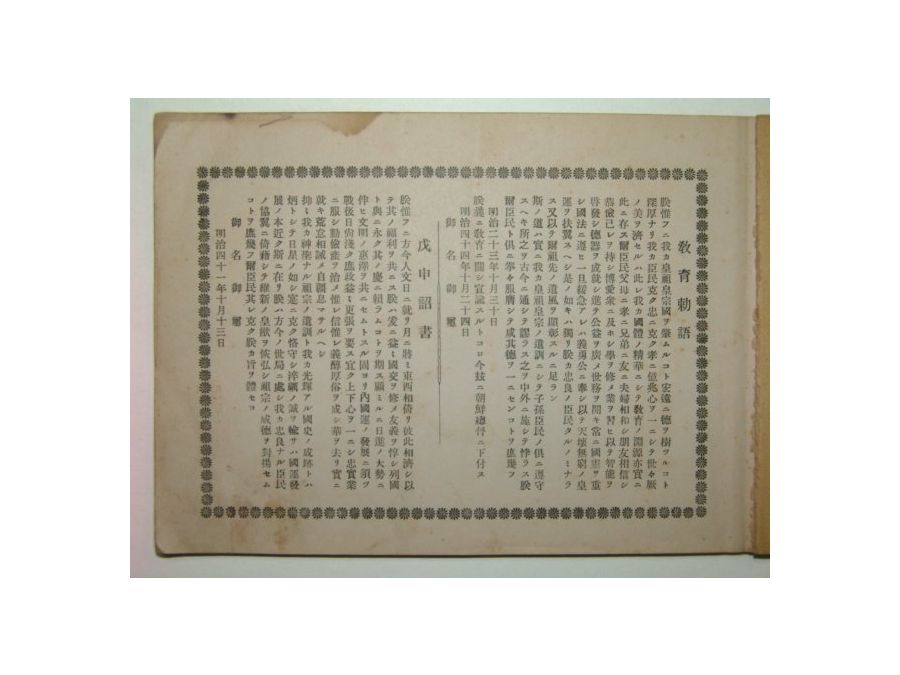 教育勅語
朕惟フニ我カ皇祖皇宗國ヲ肇ムルコト宏遠ニ德ヲ樹ツルコト
深厚ナリ我カ臣民克ク忠ニ克ク孝ニ億兆心ヲ一ニシテ世々厥
ノ美ヲ濟セルハ此レ我カ國體ノ精華ニシテ教育ノ淵源亦實ニ
此ニ存ス爾臣民父母ニ孝ニ兄弟ニ友ニ夫婦相和シ朋友相信シ
恭儉己レヲ持シ博愛衆ニ及ホシ學ヲ修メ業ヲ習ヒ以テ智能ヲ
啓發シ德器ヲ成就シ進テ公益ヲ廣メ世務ヲ開キ常ニ國憲ヲ重
シ國法ニ遵ヒ一旦緩急アレハ義勇公ニ奉シ以テ天壤無窮ノ皇
運ヲ扶翼スヘシ是ノ如キハ獨リ朕カ忠良ノ臣民タルノミナラ
ス又以テ爾祖先ノ遺風ヲ顯彰スルニ足ラン
斯ノ道ハ實ニ我カ皇祖皇宗ノ遺訓ニシテ子孫臣民ノ俱ニ遵守
スヘキ所之ヲ古今ニ通シテ謬ラス之ヲ中外ニ施シテ悖ラス朕
爾臣民ト俱ニ拳々服膺シテ咸其德ヲ一ニセンコトヲ庶幾フ
明治二十三年十月三十日
朕曩ニ教育ニ關シ宣諭スルトコロ今茲ニ朝鮮總督ニ下付ス
明治四十四年十月二十四日
御名御璽
戊申詔書
朕惟フニ方今人文日ニ就リ月ニ將ミ東西相倚リ彼此相濟シ以
テ其ノ福利ヲ共ニス朕ハ爰ニ益々國交ヲ修メ友義ヲ惇シ列國
ト與ニ永ク其ノ慶ニ賴ラムコトヲ期ス顧ミルニ日進ノ大勢ニ
伴ヒ文明ノ惠澤ヲ共ニセムトスル固ヨリ內國運ノ發展ニ須ツ
戰後日尙淺ク庶政益々更張ヲ要ス宜ク上下心ヲ一ニシ忠實業
ニ服シ勤儉產ヲ治メ惟レ信惟レ義醇厚俗ヲ成シ華ヲ去リ實ニ
就キ荒怠相誡メ自彊息マサルヘシ
抑々我カ神聖ナル祖宗ノ遺訓ト我カ光輝アル國史ノ成跡トハ
炳トシテ日星ノ如シ寔ニ克ク恪守シ淬礪ノ誠ヲ輸サハ國運發
展ノ本近ク斯ニ在リ朕ハ方今ノ世局ニ處シ我カ忠良ナル臣民
ノ協翼ニ倚藉シテ維新ノ皇猷ヲ恢弘シ祖宗ノ威德ヲ對揚セム
コトヲ庶幾フ爾臣民其レ克ク朕カ旨ヲ體セヨ
御名御璽
明治四十一年十月十三日